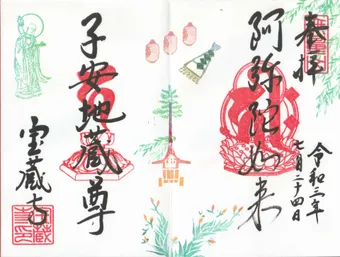 奉拝
令和三年
七月二十四日
阿弥陀如来
子安地蔵尊
宝蔵寺